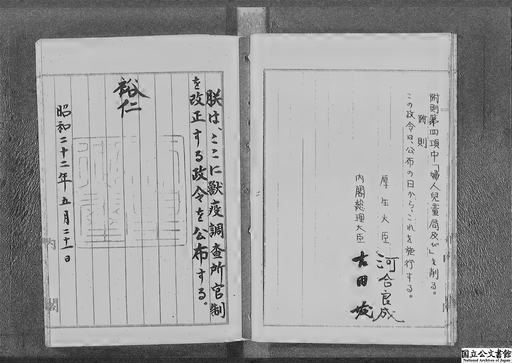 附則第四項中「婦人児童局及び」を削る。
附則
この政令は、公布の日から、これを施行する。
厚生大臣 河合良成
内閣総理大臣 吉田茂
朕は、ここに獣疫調査所官制
を改正する政令を公布する。
裕仁
昭和二十二年五月二十一日
内閣
国立公文書館
National Archives of Japan